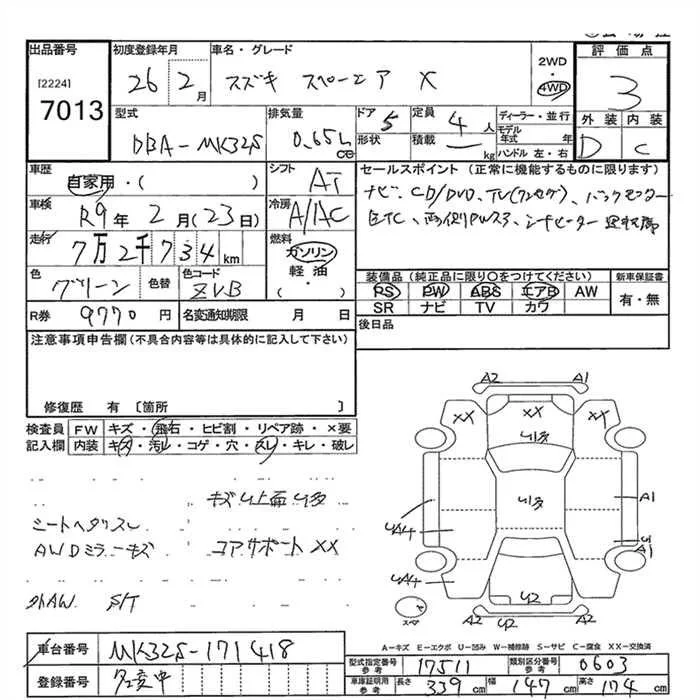 出品番号
[2224]
7013
初度登録年月
26年 2月
車名・グレード
スズキ スペーシア X
2WD
・
4WD
評価点
3
外装 内装
D C
型式
DBA-MK32S
排気量
0.65L
cc
ドア
5
形状
定員 4人
積載 — kg
ディーラー・並行
モデル年式 年
ハンドル 左・右
車歴
自家用・( )
シフト
AT
車検
R9年 2月(23日)
冷房
A/AC
走行
7万2千734km
燃料
ガソリン
軽油
・( )
色
グリーン
色替
色コード
ZVB
R券
9770円
名変通知期限 月 日
セールスポイント(正常に機能するものに限ります)
ナビ、CD/DVD、TV(ワンセグ)、バックモニター
ETC、両側PWスラ、シートヒーター 運転席
装備品(純正品に限り〇をつけてください)
PS PW ABS エアB AW
SR ナビ TV カワ
新車保証書
有・無
後日品
注意事項申告欄(不具合内容等は具体的に記入して下さい)
修復歴 有 〔箇所 〕
検査員記入欄
FW キズ・飛石・ヒビ割・リペア跡・×要
内装 キズ・汚レ・コゲ・穴・スレ・キレ・破レ
シートヘタリスレ
AWDミラーキズ
コアサポートXX
外AW S/T
A2 A1
XX XX XX
U多
U多
A1
UA4
U
A1
UA4
U2
U2 U2
スペア
A-キズ E-エクボ U-凹み W-補修跡 S-サビ C-腐食 XX-交換済
車台番号
MK32S-171418
登録番号
名変中
型式指定番号
参考
17511
類別区分番号
参考
0603
車庫証明用
参考
長さ 339cm 幅 147cm 高さ 174cm